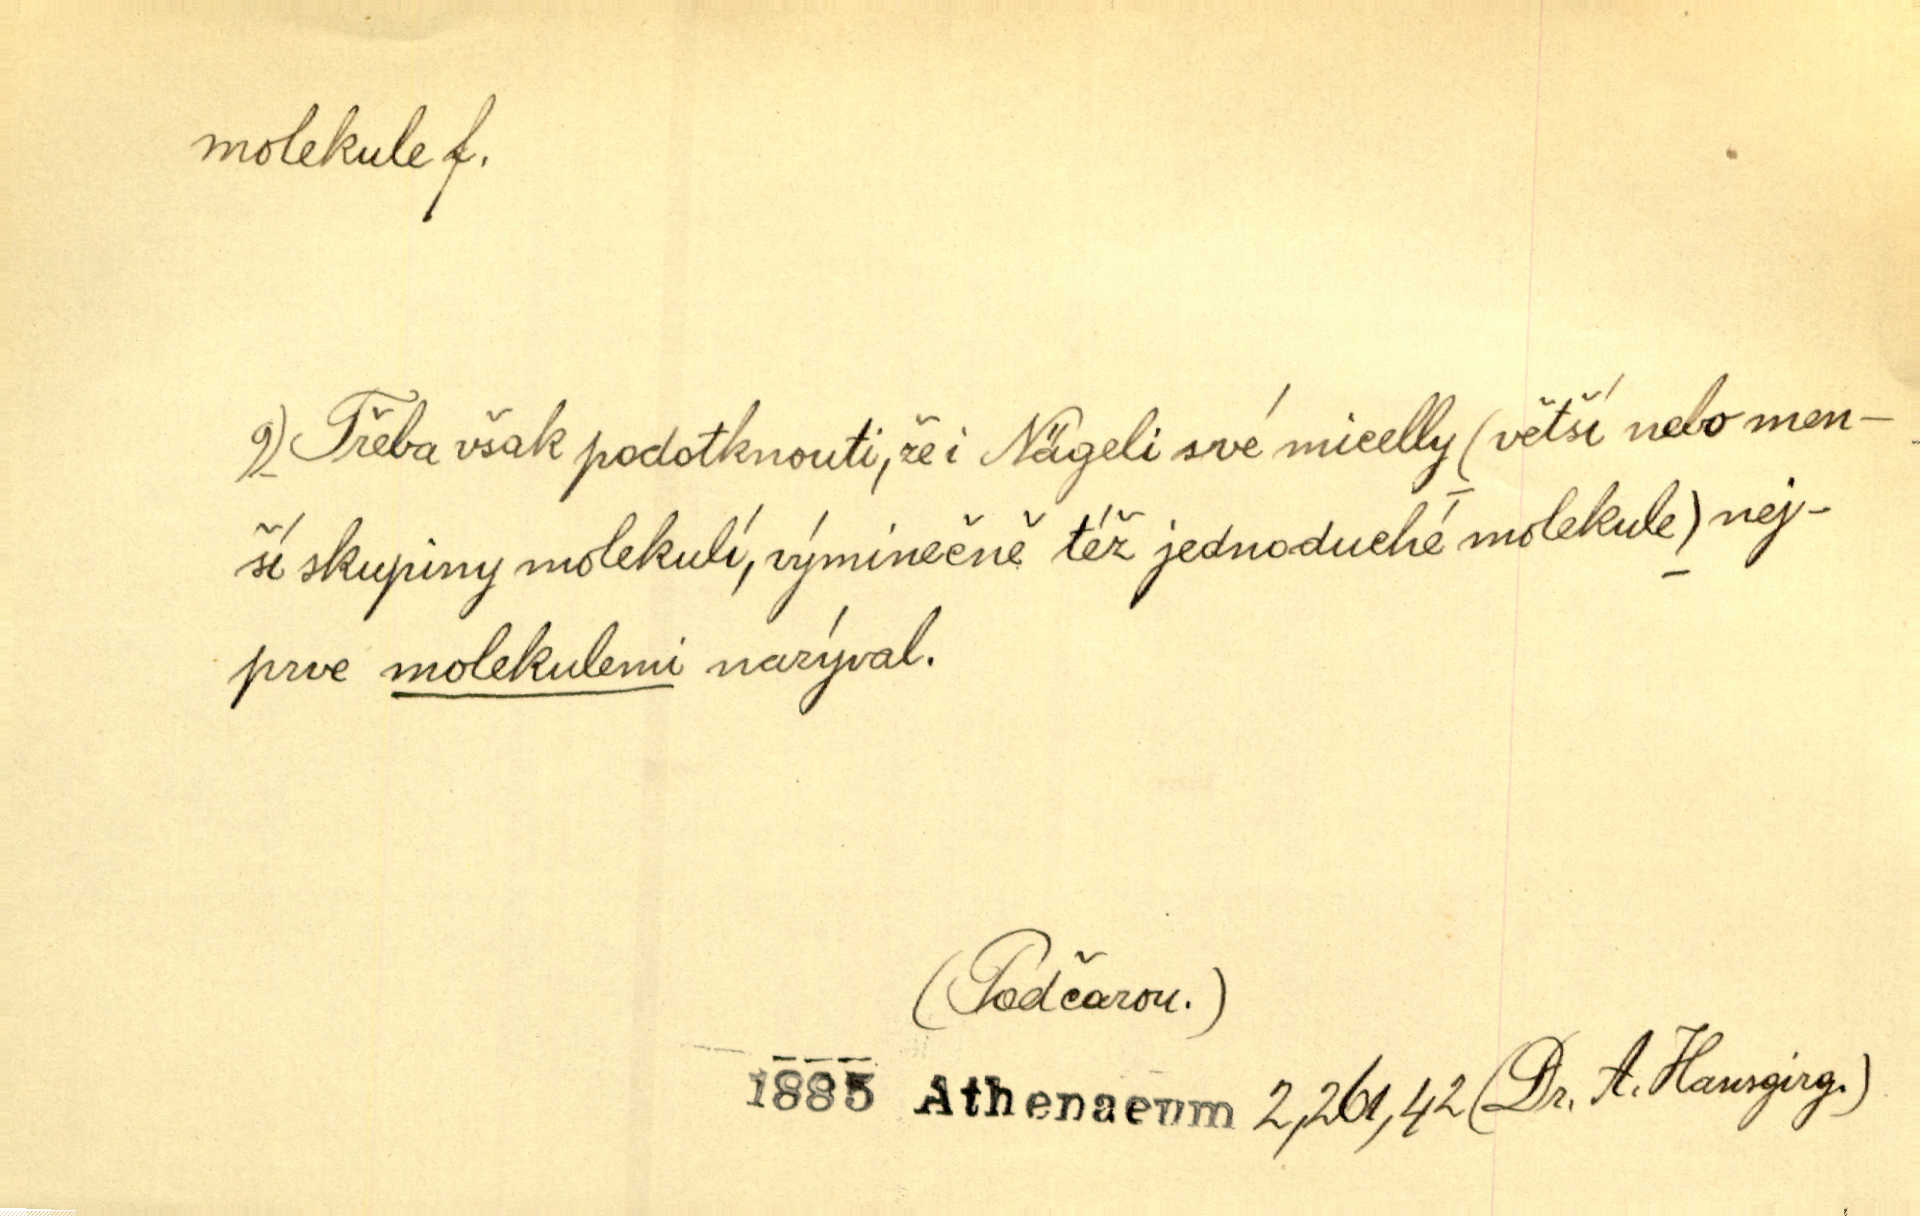 molekule f.
9) Třeba však podotknouti, že i Nägeli své micelly (větší nebo men-
ší skupiny molekulí, výminečně též jednoduché molekule) nej-
prve molekulemi nazýval.
(Pod čarou.)
1885 Athenaeum 2,261,42 (Dr. A. Hansgirg.)